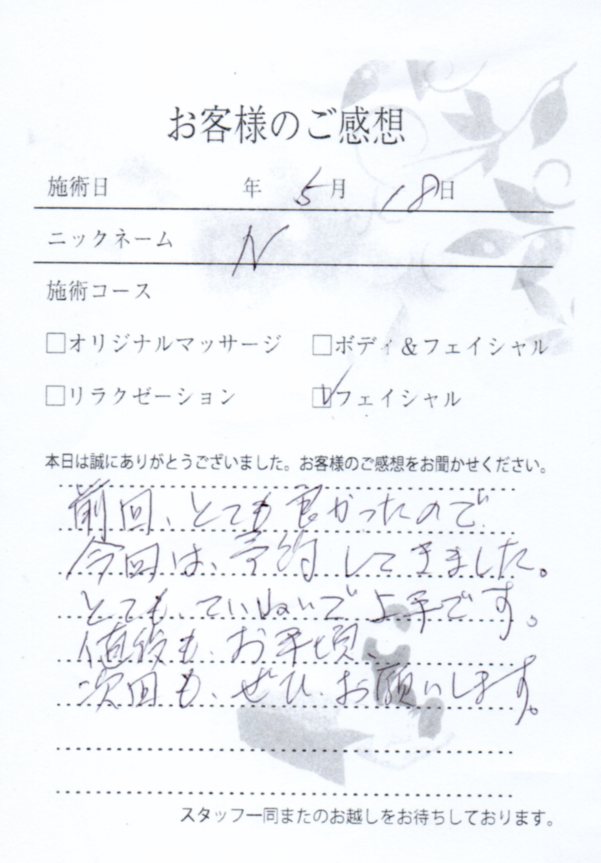 お客様のご感想
施術日 年 5月 18日
ニックネーム N
施術コース
□オリジナルマッサージ □ボディ&フェイシャル
□リラクゼーション ☑フェイシャル
本日は誠にありがとうございました。お客様のご感想をお聞かせください。
前回、とても良かったので
今回は、予約してきました。
とても、ていねいで上手です。
値段も、お手頃、
次回も、ぜひ、お願いします。
スタッフ一同またのお越しをお待ちしております。